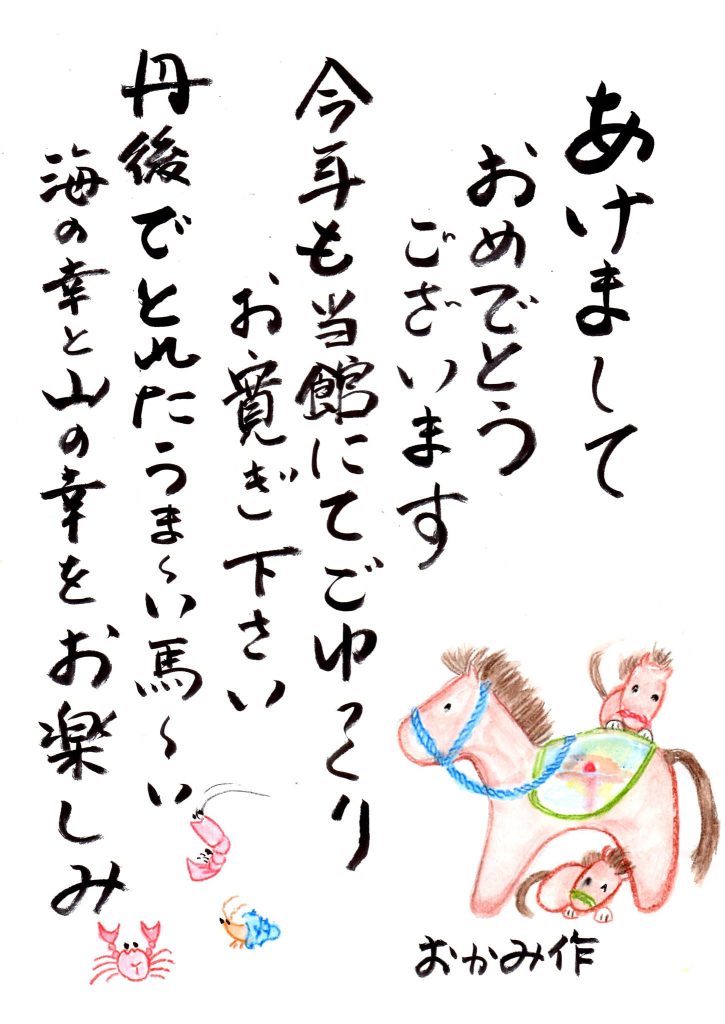 あけまして
おめでとう
ございます
今年も当館にてごゆっくり
お寛ぎ下さい
丹後でとれたうま〜い馬〜い
海の幸と山の幸をお楽しみ
おかみ作